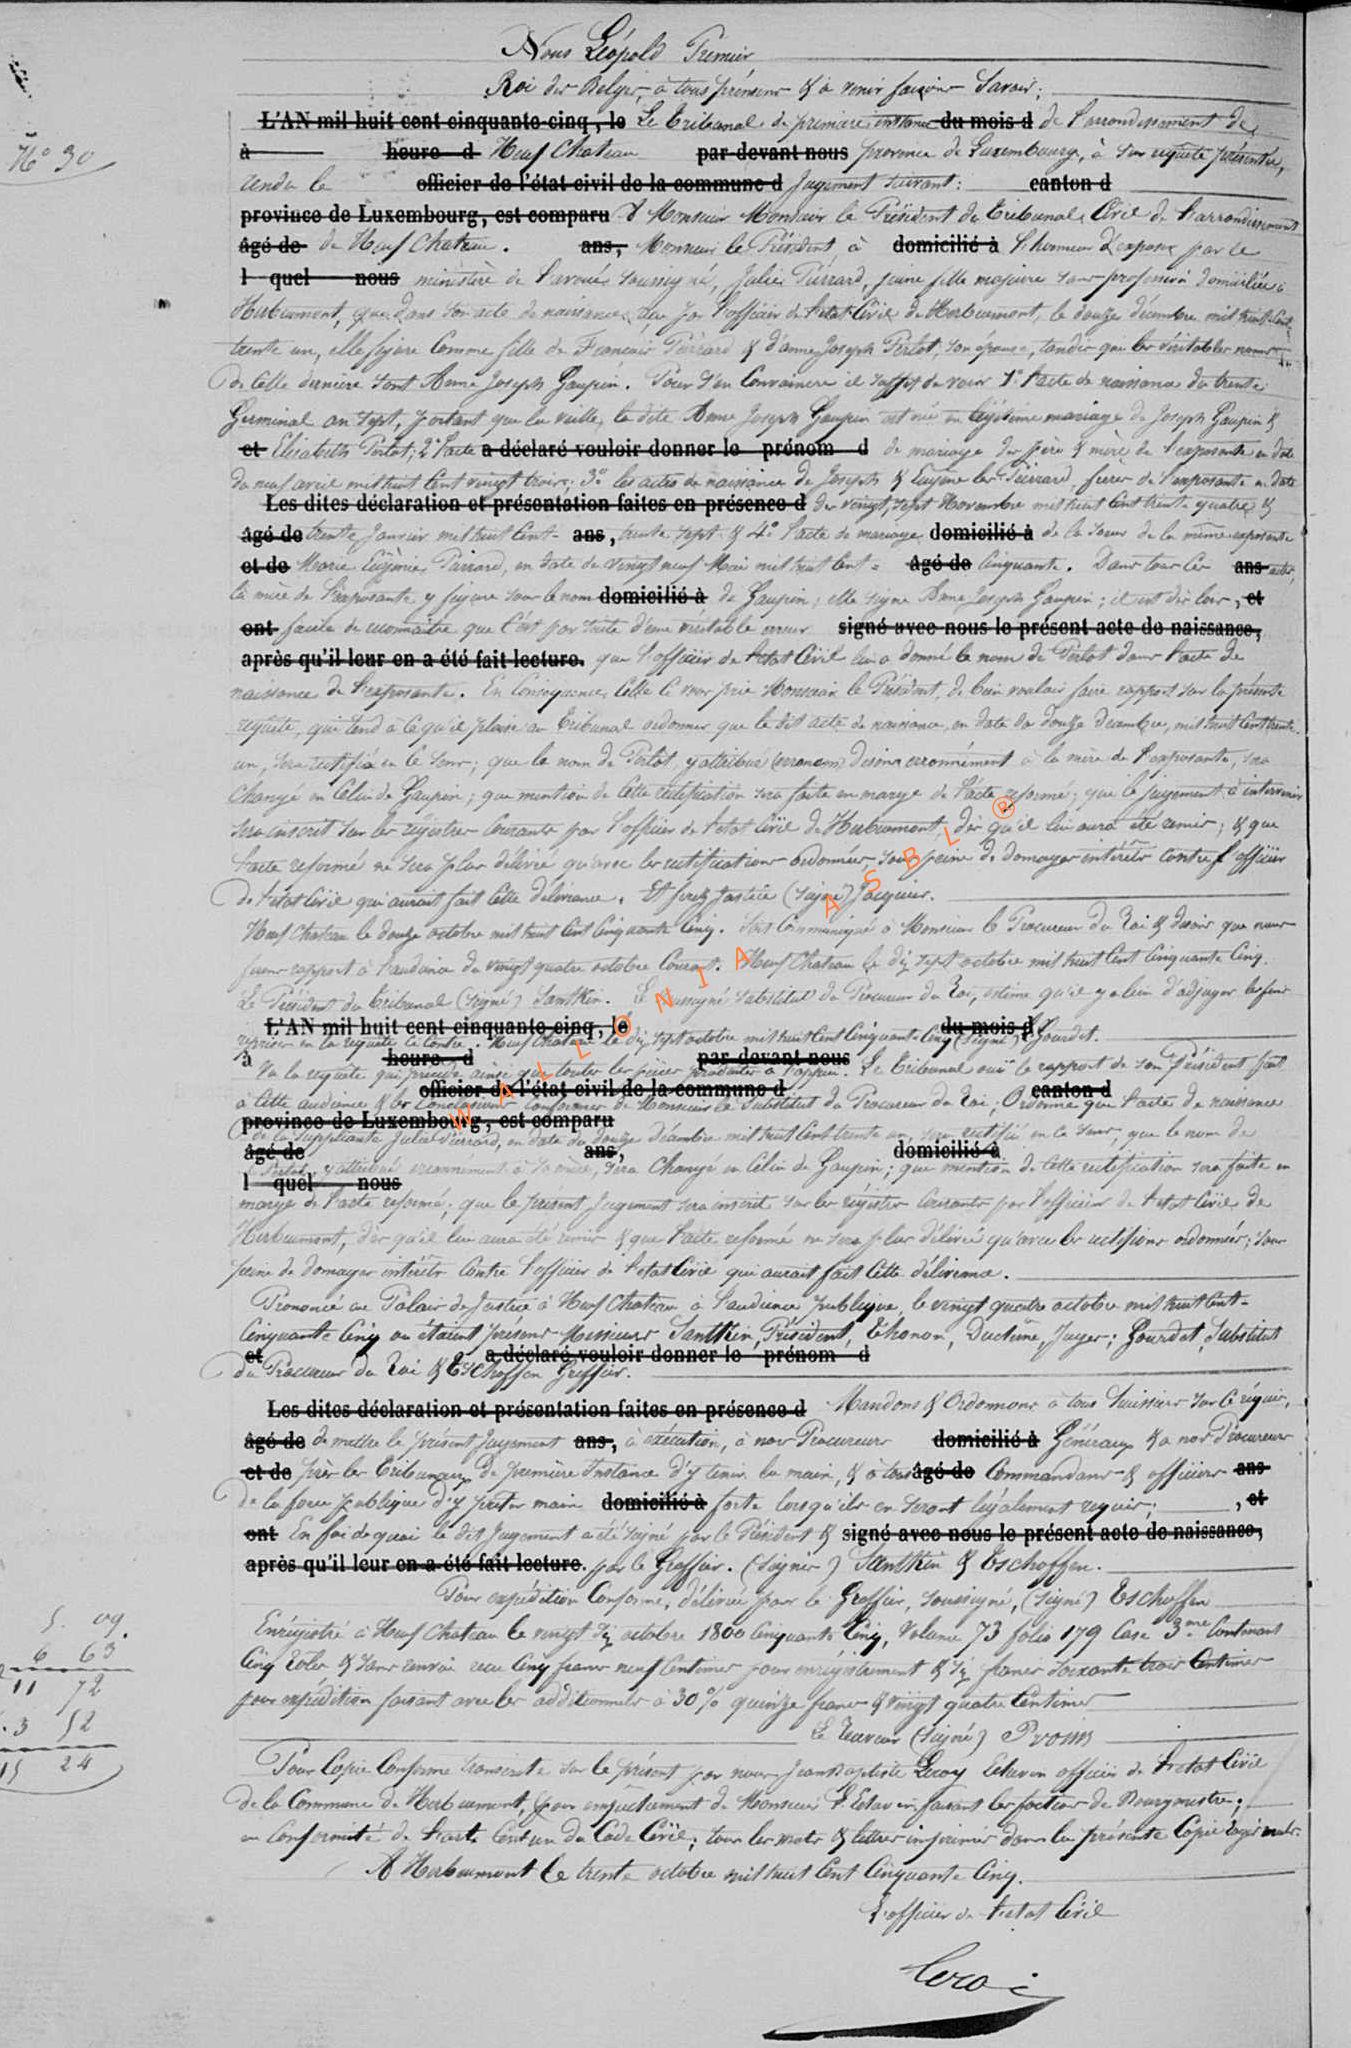 Nous Léopold Premier
Roi des Belges, à tous présens & à venir faisons Savoir;
N° 30
L'AN mil huit cent cinquante-cinq, le Le Tribunal de première instance du mois d de l'arrondissement de
à heure d Neufchateau par devant nous province de Luxembourg, à sur requête présentée,
rendu le officier de l'état civil de la commune d Jugement suivant: canton d
province de Luxembourg, est comparu A Monsieur Monsieur le Président du Tribunal Civil de l'arrondissement
âgé de de Neufchateau. ans, Monsieur le Président à domicilié à l'honneur d'exposer par le
l quel nous ministère de l'avoué soussigné, Julie Pierrard, jeune fille majeure sans profession domiciliée à
Herbeumont, que dans son acte de naissance, reçu par l'officier de l'état Civil de Herbeumont, le douze décembre mil huit Cent
trente un, elle figure Comme fille de François Pierrard & d'anne Joseph Pertot, son épouse, tandis que les véritables noms
de Cette dernière sont Anne Joseph Gaupin. Pour s'en Convaincre il suffit de voir 1° l'acte de naissance du trente
Germinal an sept, portant que la veille, la dite Anne Joseph Gaupin est née en légitime mariage de Joseph Gaupin &
et Elisabeth Pertot; 2° l'acte a déclaré vouloir donner le prénom d de mariage des père & mère de l'exposante en date
du neuf avril mil huit Cent vingt trois; 3° les actes de naissance de Joseph & Eugène les Pierrard, frères de l'exposante en date
Les dites déclaration et présentation faites en présence d des vingt sept Novembre mil huit Cent trente quatre &
âgé de trente Janvier mil huit Cent- ans, trente sept & 4° l'acte de mariage domicilié à de la Soeur de la même exposante
et de Marie Eugénie Pierrard, en date du vingt neuf Mai mil huit Cent = âgé de Cinquante. Dans tous Ces ans actes,
la mère de l'exposante y figure sous le nom domicilié à de Gaupin; elle signe Anne Joseph Gaupin; il est dès lors, et
ont facile de reconnaître que C'est par suite d'une véritable erreur signé avec nous le présent acte de naissance,
après qu'il leur en a été fait lecture. que l'officier de l'état Civil lui a donné le nom de Pertot dans l'acte de
naissance de l'exposante. En Conséquence, Celle Ci vous prie Monsieur le Président, de bien vouloir faire rapport sur la présente
requête, qui tend à ce qu'il plaise au Tribunal ordonner que le dit acte de naissance, en date du douze décembre, mil huit Cent trente
un, sera rectifié en Ce Sens; que le nom de Pertot, y attribué erronément à la mère de l'exposante, sera
Changé en Celui de Gaupin; que mention de Cette rectification sera faite en marge de l'acte reformé; que le jugement à intervenir
sera inscrit sur les registres Courants par l'officier de l'état Civil de Herbeumont, dès qu'il lui aura été remis; & que
l'acte reformé ne sera plus délivré qu'avec les rectifications ordonnées, sous peine de domages intérêts contre l'officier
de l'état Civil qui aurait fait Cette délivrance. Et ferez Justice (Signé) Jacquier.
Neufchateau le douze octobre mil huit Cent Cinquante Cinq. Soit Communiqué à Monsieur le Procureur du Roi & disons que nous
ferons rapport à l'audience du vingt quatre octobre Courant. Neufchateau le dix sept octobre mil huit Cent Cinquante Cinq.
Le Président du Tribunal (signé) Santkin. Le soussigné Substitut du Procureur du Roi, estime qu'il y a lieu d'adjuger les fins
L'AN mil huit cent cinquante-cinq, le du mois d
reprises en la requête Ci Contre. Neufchateau le dix sept octobre mil huit Cent Cinquante Cinq (signé) Gourdet.
à heure d par devant nous
Vu la requête qui précède, ainsi que toutes les pièces produites à l'appui. Le Tribunal ouï le rapport de son Président fait
officier de l'état civil de la commune d canton d
à Cette audience & les Conclusions Conformes de Monsieur le Substitut du Procureur du Roi; Ordonne que l'acte de naissance
province de Luxembourg, est comparu
de la Suppliante Julie Pierrard, en date du douze Décembre mil huit Cent trente un, sera rectifié en Ce sens, que le nom de
âgé de ans, domicilié à
Pertot, y attribué erronément à sa mère, sera Changé en Celui de Gaupin; que mention de Cette rectification sera faite en
l quel nous
marge de l'acte reformé; que le présent Jugement sera inscrit sur les régistres Courants par l'officier de l'état Civil de
Herbeumont, dès qu'il lui aura été remis & que l'acte reformé ne sera plus délivré qu'avec les rectifions ordonnées; sous
peine de domages intérêts Contre l'officier de l'état Civil qui aurait fait Cette délivrance.
Prononcé au Palais de Justice à Neufchateau à l'audience publique, le vingt quatre octobre mil huit Cent-
Cinquante Cinq où étaient présens Messieurs Santkin, Président, Thonon, Juges; Gourdet, Substitut
et a déclaré vouloir donner le prénom d
du Procureur du Roi & Eschoffen Greffier.
Les dites déclaration et présentation faites en présence d Mandons & Ordonnons à tous huissiers sur Ce réquis,
âgé de de mettre le présent Jugement ans, à exécution, à nos Procureurs domicilié à Généraux & à nos Procureurs
et de près les Tribunaux de première Instance d'y tenir la main, & à tous âgé de Commandans & officiers ans
de la force publique d'y prêter main domicilié à forte lorsqu'ils en seront légalement requis; , et
ont En foi de quoi le dit Jugement a été signé par le Président & signé avec nous le présent acte de naissance,
après qu'il leur en a été fait lecture. par le Greffier. (Signés) Santkin & Eschoffen.
Pour expédition Conforme, délivrée par le Greffier, soussigné, (signé) Eschoffen
Enrégistré à Neufchateau le vingt six octobre 1800 Cinquante Cinq, Volume 73 folio 179 Case 3me Contenant
Cinq roles & sans renvoi reçu Cinq francs neuf Centimes pour enrégistrement & six francs soixante trois Centimes
pour expédition faisant avec les additionnels à 30% quinze francs & vingt quatre Centimes
Le Receveur (signé) Proum
5. 09.
6 63
11 72
3 52
15 24
Pour Copie Conforme transcrite sur le présent par nous Jean Baptiste Leroy Echevin officier de l'état Civil
de la Commune de Herbeumont, pour empêchement de Monsieur l'Echevin faisant les foctions de Bourgmestre;
en Conformité de l'art. Cent un du Code Civil; tous les mots & lettres imprimés dans la présente Copie rayés nuls.
A Herbeumont le trente octobre mil huit Cent Cinquante Cinq.
L'officier de l'état Civil
Leroi
WALLONIA ASBL ®